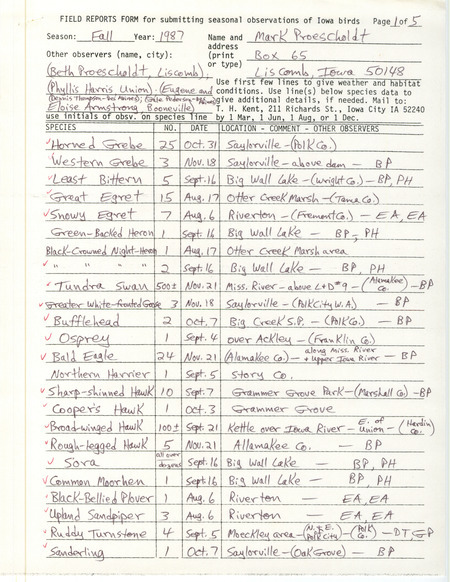 FIELD REPORTS FORM for submitting seasonal observations of Iowa birds Page 1 of 5
Season: Fall Year: 1987 Name and Mark Proescholdt
address
Other observers (name, city): (print Box 65
or type)
(Beth Proescholdt, Liscomb), Liscomb, Iowa 50148
(Phyllis Harris, Union) (Eugene and Use first few lines to give weather and habitat
conditions. Use line(s) below species data to
Eloise Armstrong, Booneville) give additional details, if needed. Mail to:
T. H. Kent, 211 Richards St., Iowa City IA 52240
use initials of obsv. on species line by 1 Mar, 1 Jun, 1 Aug, or 1 Dec.
SPECIES NO. DATE LOCATION - COMMENT - OTHER OBSERVERS
✓Horned Grebe 25 Oct. 31 Saylorville - (Polk Co.)
✓Western Grebe 3 Nov. 18 Saylorville - above dam - BP
✓Least Bittern 5 Sept. 16 Big Wall Lake - (Wright Co.) - BP, PH
✓Great Egret 15 Aug. 17 Otter Creek Marsh - (Tama Co.)
✓Snowy Egret 7 Aug. 6 Riverton - (Fremont Co.) - EA, EA
Green-Backed Heron 1 Sept. 16 Big Wall Lake - BP, PH
Black-Crowned Night-Heron 1 Aug. 17 Otter Creek Marsh area
✓ " " " 2 Sept. 16 Big Wall Lake - BP, PH
✓Tundra Swan 500± Nov. 21 Miss. River - above L+D #9 - (Allamakee Co.) - BP
✓Greater White-fronted Goose 3 Nov. 18 Saylorville - (Polk City W.A.) - BP
✓Bufflehead 2 Oct. 7 Big Creek S.P. - (Polk Co.) - BP
✓Osprey 1 Sept. 4 over Ackley - (Franklin Co.)
✓Bald Eagle 24 Nov. 21 (Allamakee Co.) - along Miss. River + Upper Iowa River - BP
Northern Harrier 1 Sept. 5 Story Co.
✓Sharp-shinned Hawk 10 Sept. 7 Grammer Grove Park - (Marshall Co.) - BP
✓Cooper's Hawk 1 Oct. 3 Grammer Grove
✓Broad-winged Hawk 100± Sept. 21 Kettle over Iowa River - E. of Union - (Hardin Co.)
✓Rough-legged Hawk 5 Nov. 21 Allamakee Co. - BP
✓Sora all over dozens Sept. 16 Big Wall Lake - BP, PH
✓Common Moorhen 1 Sept. 16 Big Wall Lake - BP, PH
✓Black-Bellied Plover 1 Aug. 6 Riverton - EA, EA
✓Upland Sandpiper 3 Aug. 6 Riverton - EA, EA
✓Ruddy Turnstone 4 Sept. 5 Moeckley area - (N.+E. Polk City) - (Polk Co.) - DT, GP
✓Sanderling 1 Oct. 7 Saylorville - (Oak Grove) - BP